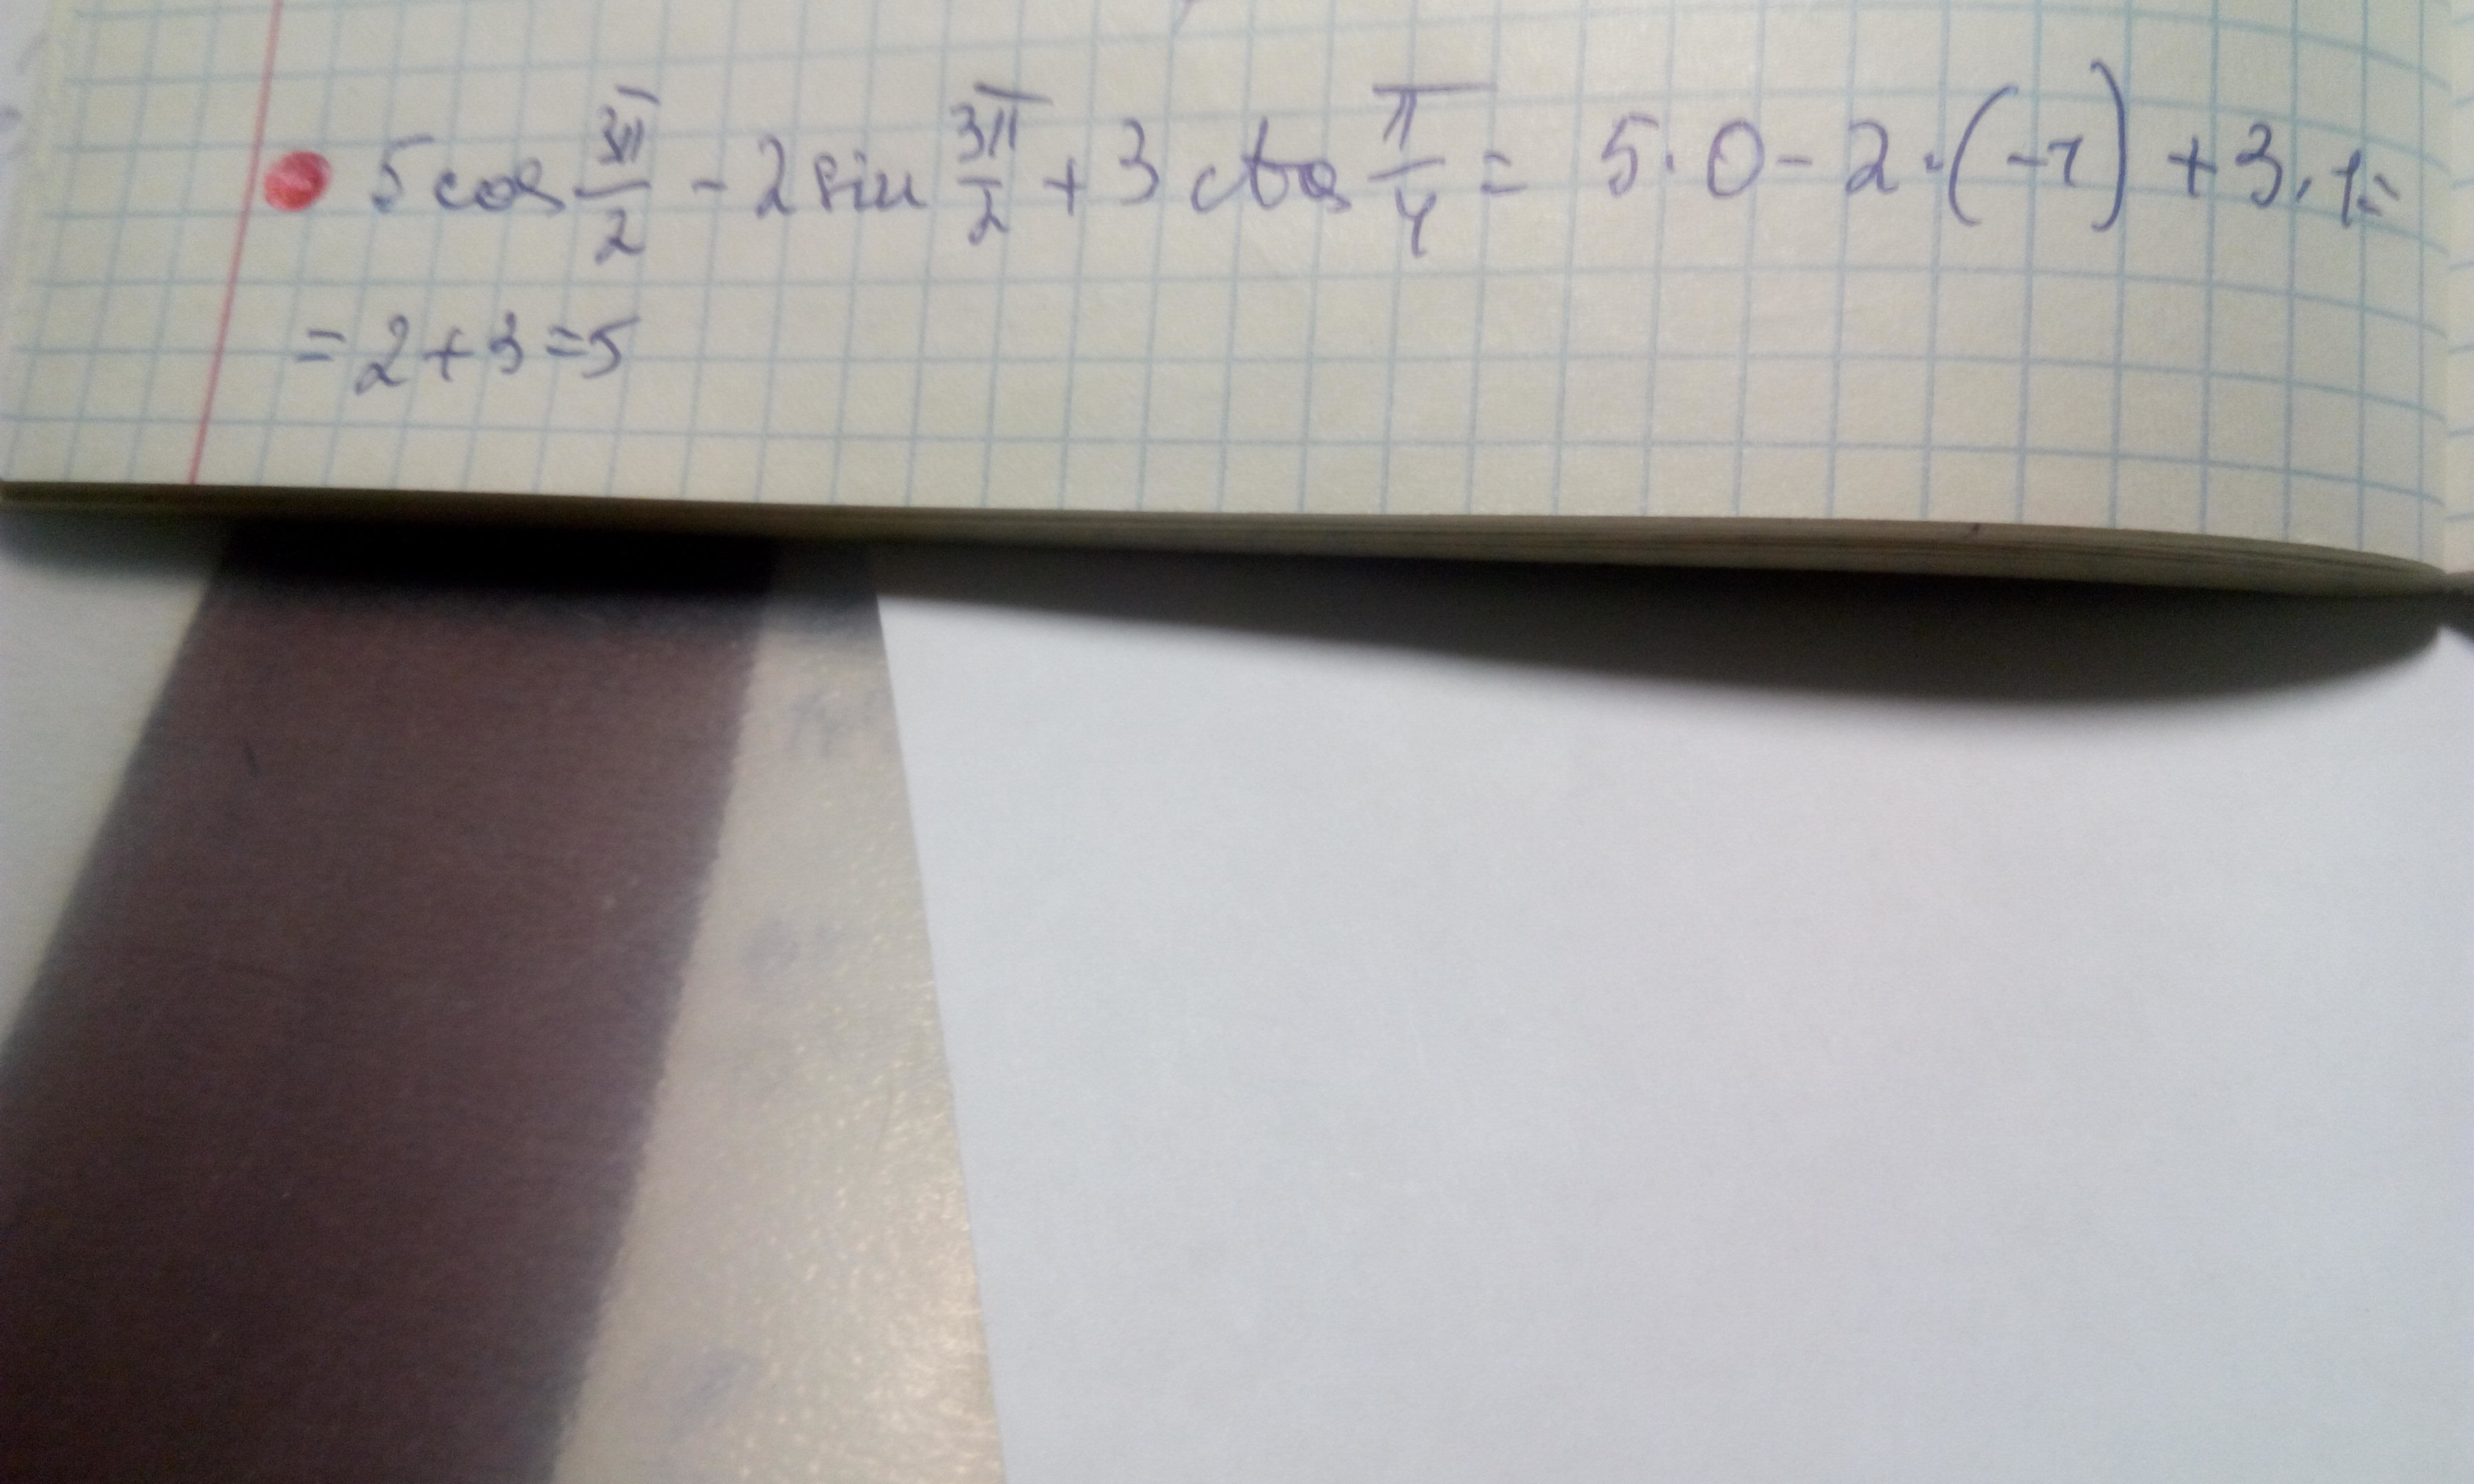 5 cos 3π/2 - 2 sin 3π/2 + 3 ctg π/4 = 5 · 0 - 2 · (-1) + 3 · 1 =
= 2 + 3 = 5